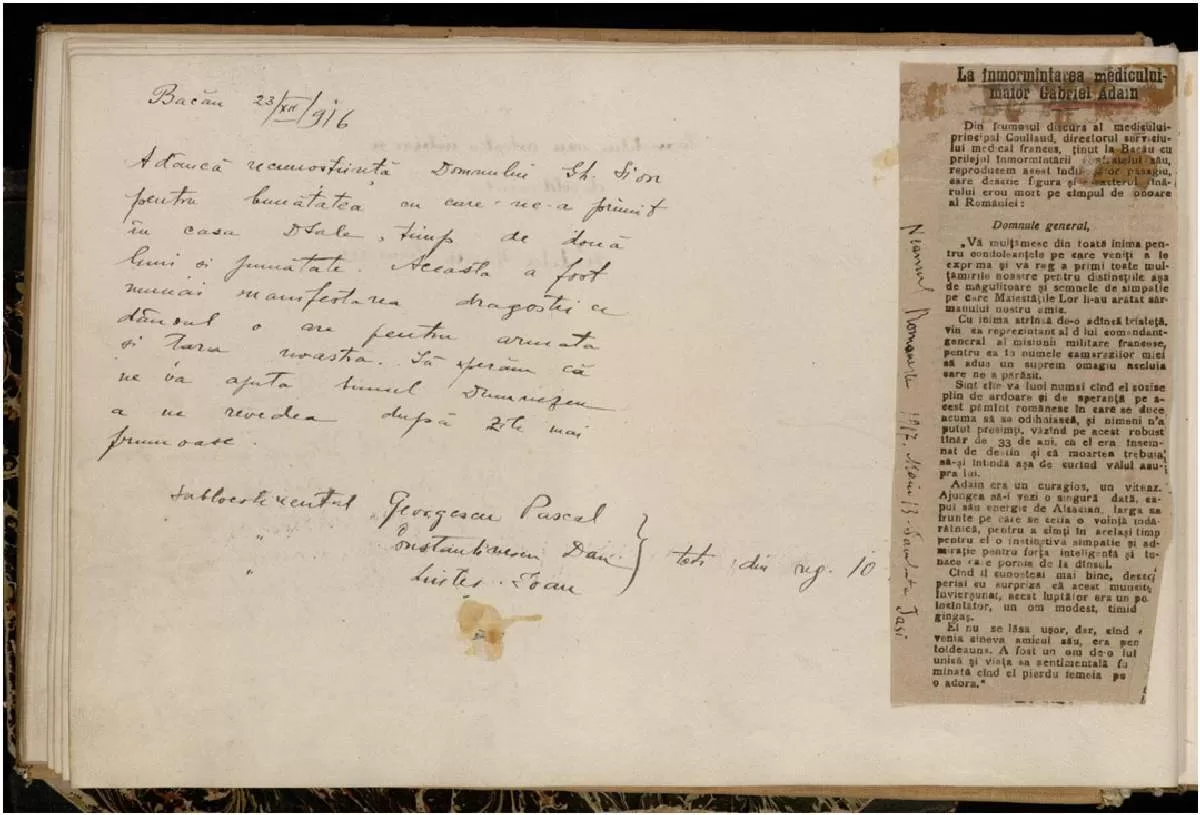 Bacău 23/XII/916
Adâncă recunoștiință Domnului Gh. Sion
pentru bunătatea cu care ne-a primit
în casa DSale, timp de două
luni și jumătate. Aceasta a fost
numai manifestarea dragostei ce
dânsul o are pentru armata
și țara noastră. Să sperăm că
ne va ajuta bunul Dumnezeu
a ne revedea după zile mai
frumoase.
Sublocotenentul Georgescu Pascal
" Constantinescu Dan
" Ioan
toți din reg. 10
Neamul Românesc 1917. 13. Iași
La înmormîntarea medicului-
maior Gabriel Adain
Din frumosul discurs al medicului-
principal Coullaud, directorul serviciu-
lui medical francez, ținut la Bacău cu
prilejul înmormîntării său,
reproducem acest pasagiu,
care descrie figura și caracterul tînă-
rului erou mort pe cîmpul de onoare
al României:
Domnule general,
„Vă mulțămesc din toată inima pen-
tru condoleanțele pe care veniți a le
exprima și vă rog a primi toate mul-
țămirile noastre pentru distincțiile așa
de măgulitoare și semnele de simpatie
pe care Maiestățile Lor li-au arătat săr-
manului nostru amic.
Cu inima strînsă de-o adîncă tristeță,
vin, ca reprezintant al d lui comandant-
general al misiunii militare franceze,
pentru ca în numele camarazilor miei
să aduc un suprem omagiu aceluia
care ne-a părăsit.
Sint cîte va luni numai cînd el sosise
plin de ardoare și de speranță pe a-
cest pămînt românesc în care se duce
acuma să se odihnească, și nimeni n'a
putut presimți, văzînd pe acest robust
tînăr de 33 de ani, că el era însem-
nat de destin și că moartea trebuia
să-și întindă așa de curînd vălul asu-
pra lui.
Adain era un curagios, un viteaz.
Ajungea să-i vezi o singură dată, ca-
pul său energic de Alsacian, larga sa
frunte pe care se cetia o voință îndă-
rătnică, pentru a simți în același timp
pentru el o instinctiva simpatie și ad-
mirație pentru forța inteligentă și te-
nace care pornia de la dînsul.
Cînd îl cunoșteai mai bine, descó-
periai cu surpriză că acest muncitor
înverșunat, acest luptător era un
un om modest, timid
gingaș.
El nu se lăsa ușor, dar, cînd
venia cineva amicul său, era pen
totdeauna. A fost un om de-o
unică și viața sa sentimentală fu
minată cînd el pierdu femeia pe
o adora."